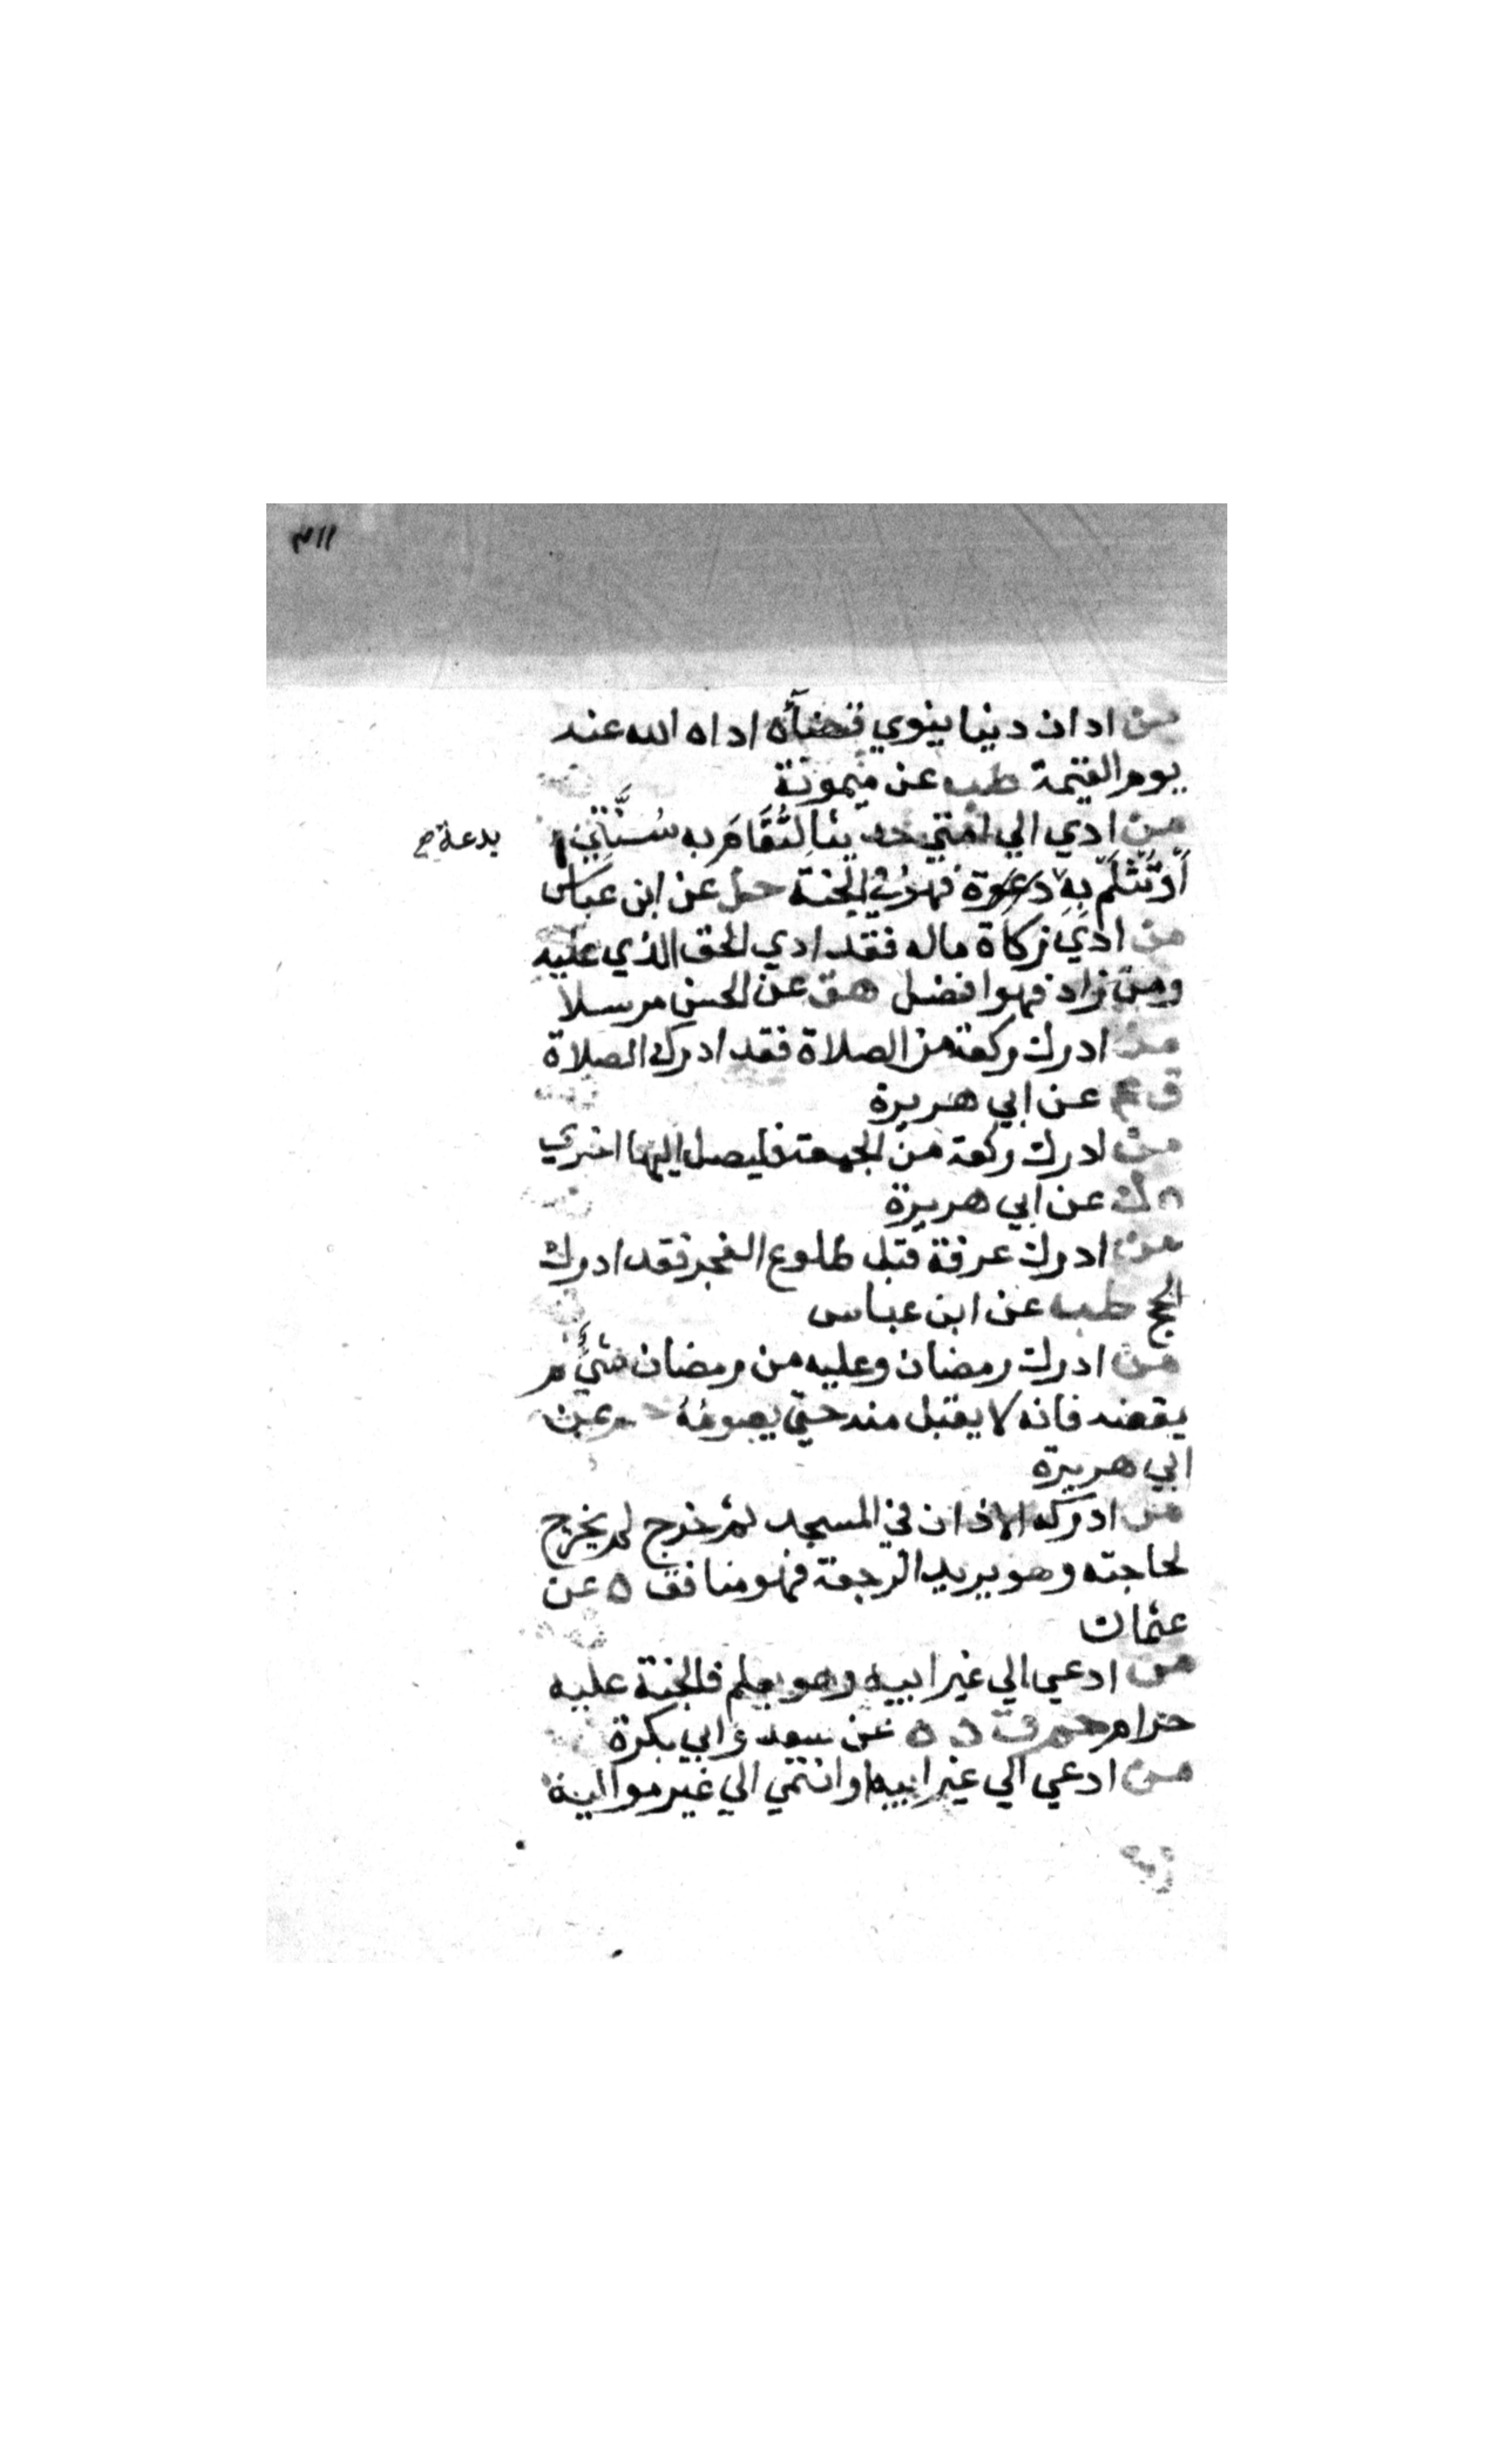 ٣١١
من ادان دينا ينوي قضآه اداه الله عنه
يوم القيمة طب عن ميمونة
من ادي الي امتي حديثا لتُقَامَ به سُنَّتِي
أو تُثلَم به دعوة فهو في الجنة حل عن ابن عباس
بدعة صح
من ادي زكاة ماله فقد ادي الحق الذي عليه
ومن زاد فهو افضل هق عن الحسن مرسلا
من ادرك ركعة من الصلاة فقد ادرك الصلاة
ق ع عن ابي هريرة
من ادرك ركعة من الجمعة فليصل اليها اخري
ه ك عن ابي هريرة
من ادرك عرفة قبل طلوع الفجر فقد ادرك
الحج طب عن ابن عباس
من ادرك رمضان وعليه من رمضان شيء لم
يقضه فانه لا يقبل منه حتي يصومه حم عن
ابي هريرة
من ادركه الاذان في المسجد ثم خرج لم يخرج
لحاجته وهو يريد الرجعة فهو منافق ه عن
عثمان
من ادعي الي غير ابيه وهو يعلم فالجنة عليه
حرام حم ق د ه عن سعد وابي بكرة
من ادعي الي غير ابيه او انتمي الي غير مواليه